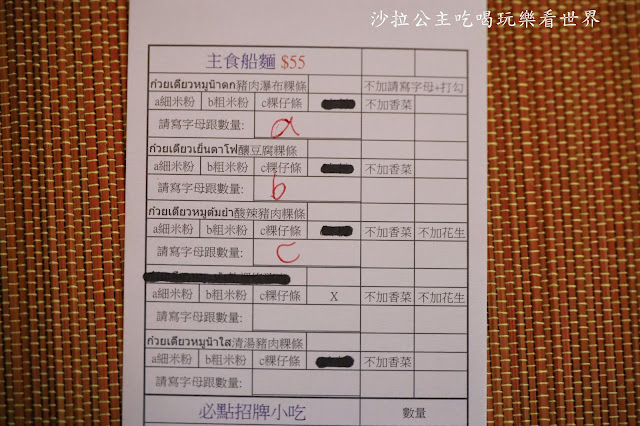 沙拉公主吃喝玩樂看世界
主食船麵 $55
ก๋วยเตียวหมูน้ำตก豬肉瀑布粿條 不加請寫字母+打勾
a細米粉 b粗米粉 c粿仔條 不加香菜
請寫字母跟數量: a
ก๋วยเตียวเย็นตาโฟ釀豆腐粿條
a細米粉 b粗米粉 c粿仔條 不加香菜
請寫字母跟數量: b
ก๋วยเตียวหมูต้มยำ酸辣豬肉粿條
a細米粉 b粗米粉 c粿仔條 不加香菜 不加花生
請寫字母跟數量: c
a細米粉 b粗米粉 c粿仔條 X 不加香菜 不加花生
請寫字母跟數量:
ก๋วยเตียวหมูน้ำใส清湯豬肉粿條
a細米粉 b粗米粉 c粿仔條 不加香菜
請寫字母跟數量:
必點招牌小吃 數量